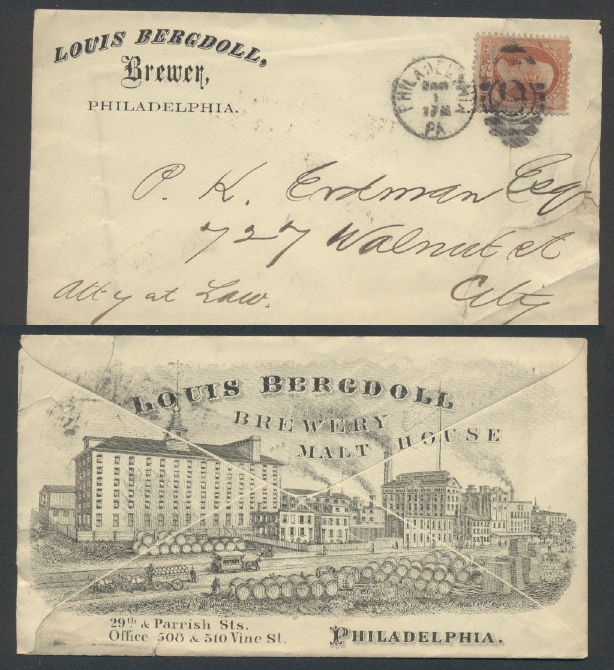 LOUIS BERGDOLL,
Brewer,
PHILADELPHIA.
PHILADELPHIA
1
PA
P. K. Erdman Esq
727 Walnut st
Att'y at Law.
City
LOUIS BERGDOLL
BREWERY
MALT HOUSE
29th & Parrish Sts.
Office 508 & 510 Vine St.
PHILADELPHIA.